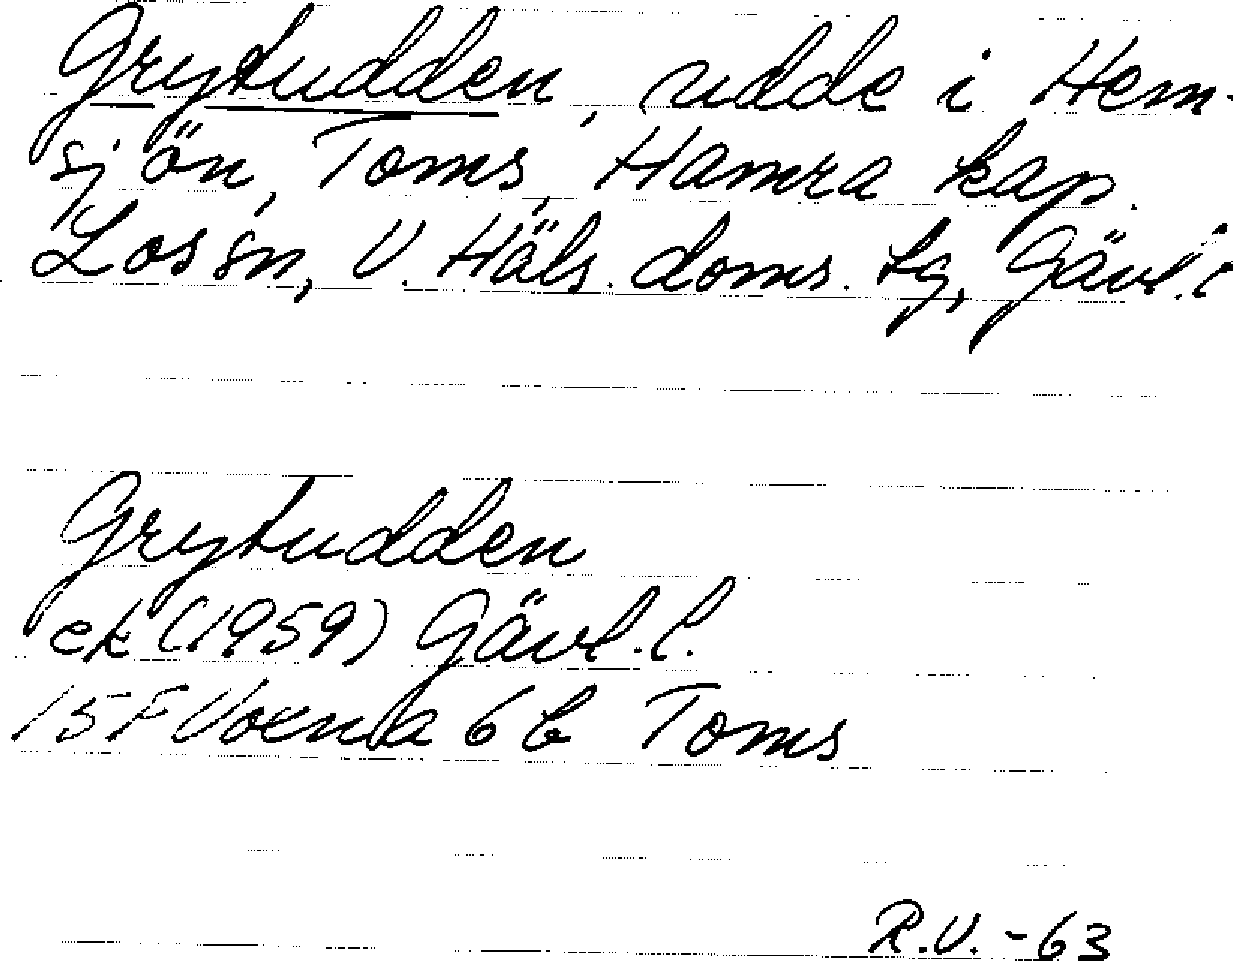 Grytudden, udde i Hem-
sjön, Toms, Hamra kap.
Los sn, V. Häls. doms. tg, Gävl. l.
Grytudden
ek (1959) Gävl. l.
15 F Voxna 6 b Toms
R.V. -63